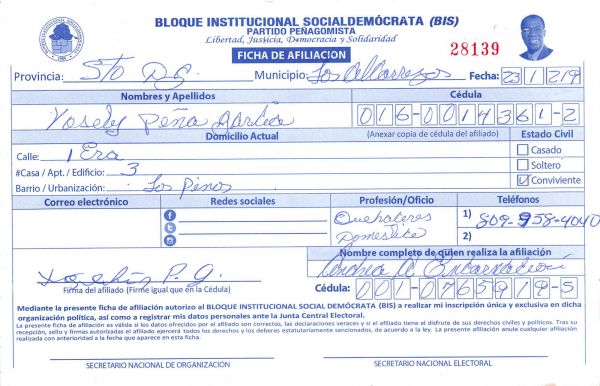 BLOQUE INSTITUCIONAL SOCIALDEMÓCRATA (BIS)
PARTIDO PEÑAGOMISTA
Libertad, Justicia, Democracia y Solidaridad
FICHA DE AFILIACION
28139
Provincia: Sto D.G. Municipio: Los Alcarrizos Fecha: 23/1/219
Nombres y Apellidos Cédula
Yosely Peña 016-0014361-2
Domicilio Actual (Anexar copia de cédula del afiliado) Estado Civil
Calle: 1 Era
Casado
#Casa / Apt. / Edificio: 3
Soltero
Barrio / Urbanización: Los Pinos
Conviviente
Correo electrónico Redes sociales Profesión/Oficio Teléfonos
Quehaceres
Domestico
1) 809-958-4040
2)
Nombre completo de quien realiza la afiliación
A Encarnación
P. G.
Firma del afiliado (Firme igual que en la Cédula)
Cédula: 001-0765919-5
Mediante la presente ficha de afiliación autorizo al BLOQUE INSTITUCIONAL SOCIAL DEMÓCRATA (BIS) a realizar mi inscripción única y exclusiva en dicha
organización política, así como a registrar mis datos personales ante la Junta Central Electoral.
La presente ficha de afiliación es válida a los datos ofrecidos por el afiliado son correctos, las declaraciones veraces y si el afiliado tiene el disfrute de sus derechos civiles y políticos. Tras su
recepción, sello y firmas autorizadas el afiliado ejercerá todos los derechos y los deberes estatutariamente sancionados, de acuerdo a la ley. La presente afiliación anula cualquier afiliación
realizada con anterioridad a la fecha que aparece en esta ficha.
SECRETARIO NACIONAL DE ORGANIZACIÓN. SECRETARIO NACIONAL ELECTORAL